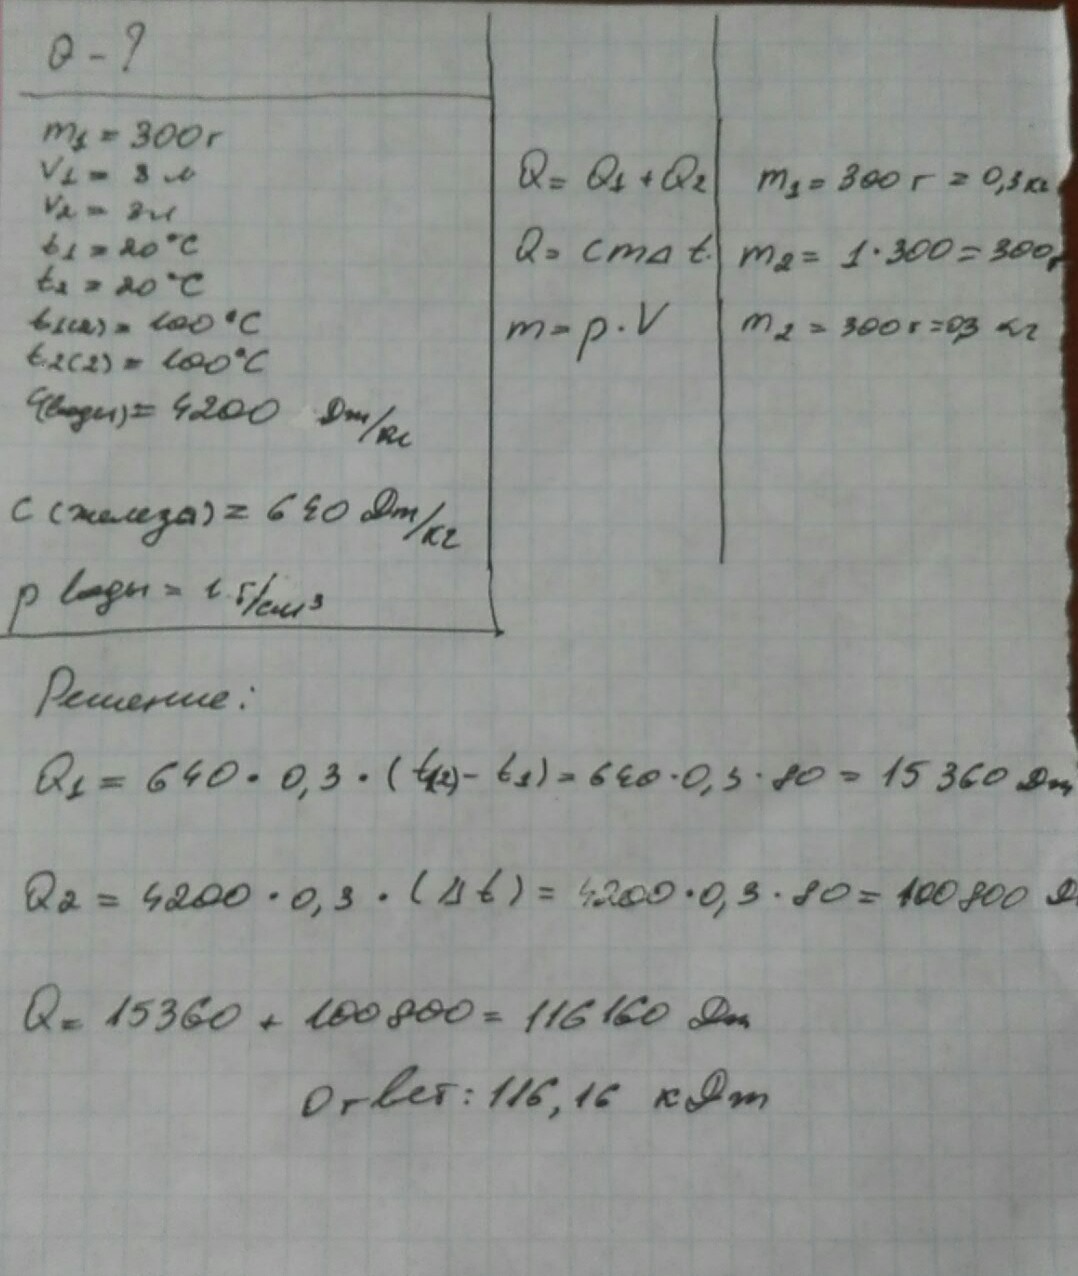 Q - ?
m₁ = 300 г
V₁ = 3 л
V₂ = 3 л
t₁ = 20 °C
t₂ = 20 °C
t₁₍₂₎ = 100 °C
t₂₍₂₎ = 100 °C
C(воды) = 4200 Дж/кг
C (железа) = 640 Дж/кг
ρ воды = 1 г/см³
Q = Q₁ + Q₂
Q = cmΔt
m = ρ · V
m₁ = 300 г = 0,3 кг
m₂ = 1 · 300 = 300г
m₂ = 300 г = 0,3 кг
Решение:
Q₁ = 640 · 0,3 · (t₁₍₂₎ - t₁) = 640 · 0,3 · 80 = 15 360 Дж
Q₂ = 4200 · 0,3 · (Δt) = 4200 · 0,3 · 80 = 100 800 Д
Q = 15360 + 100 800 = 116 160 Дж
Ответ: 116,16 кДж